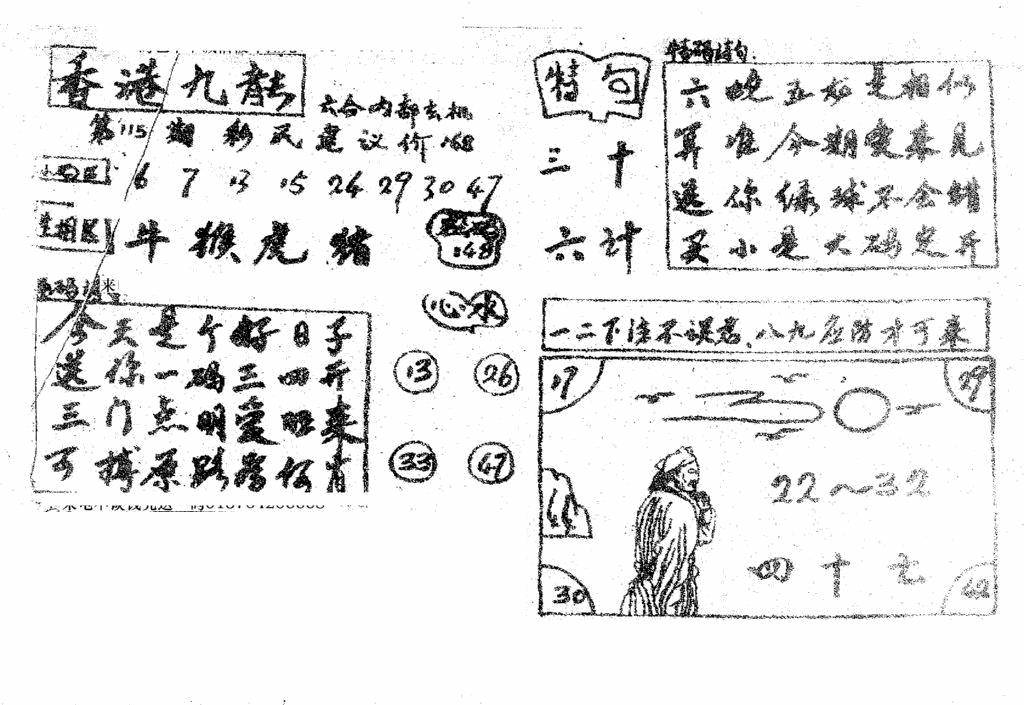 香港九龍
六合内部玄机
第115期 彩民建议价:168
6 7 13 15 24 29 30 47
生相区
牛 猴 虎 猪
168
今天是个好日子
送你一码三四开
三门点明爱 来
可搏原 肖
心水
13 26
33 47
特句
三十
六计
特码诗句:
六 五 是相似
算准今期要来见
送你绿球不会错
买小是大码定开
一二下注不误君,八九应防才可来
17 29
22~32
四十七
30 42